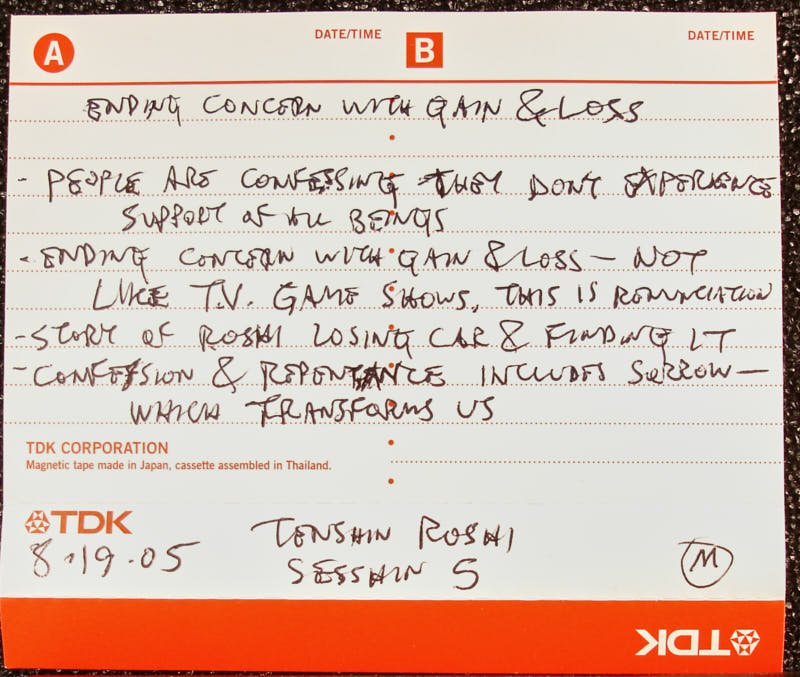 A DATE/TIME B DATE/TIME
ENDING CONCERN WITH GAIN & LOSS
- PEOPLE ARE CONFESSING THEY DONT EXPERIENCE
SUPPORT OF ALL BEINGS
- ENDING CONCERN WITH GAIN & LOSS — NOT
LIKE T.V. GAME SHOWS, THIS IS RENUNCIATION
- STORY OF ROSHI LOSING CAR & FINDING IT
- CONFESSION & REPENTANCE INCLUDES SORROW —
WHICH TRANSFORMS US
TDK CORPORATION
Magnetic tape made in Japan, cassette assembled in Thailand.
TDK
8.19.05 TENSHIN ROSHI
SESSHIN 5 M
TDK